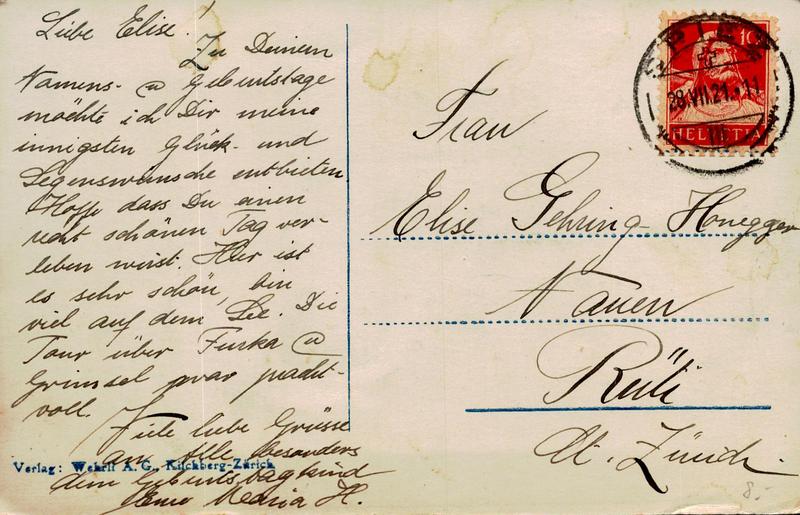 Liebe Elise!
Zu Deinem
Namens- u Geburtstage
möchte ich Dir meine
innigsten Glück- und
Segenswünsche entbieten
Hoffe dass Du einen
recht schönen Tag ver-
leben wirst. Hier ist
es sehr schön, bin
viel auf dem See. Die
Tour über Furka u
Grimsel war pracht-
voll.
Viele liebe Grüsse
an alle besonders
dem Geburtstagkind
Maria H.
Verlag: Wehrli A. G., Kilchberg-Zürich
SPIEZ
28.VII.21.-11
III
10
HELVETIA
Frau
Elise Gehring-Honegger
Nauen
Rüti
Kt. Zürich.
8.-